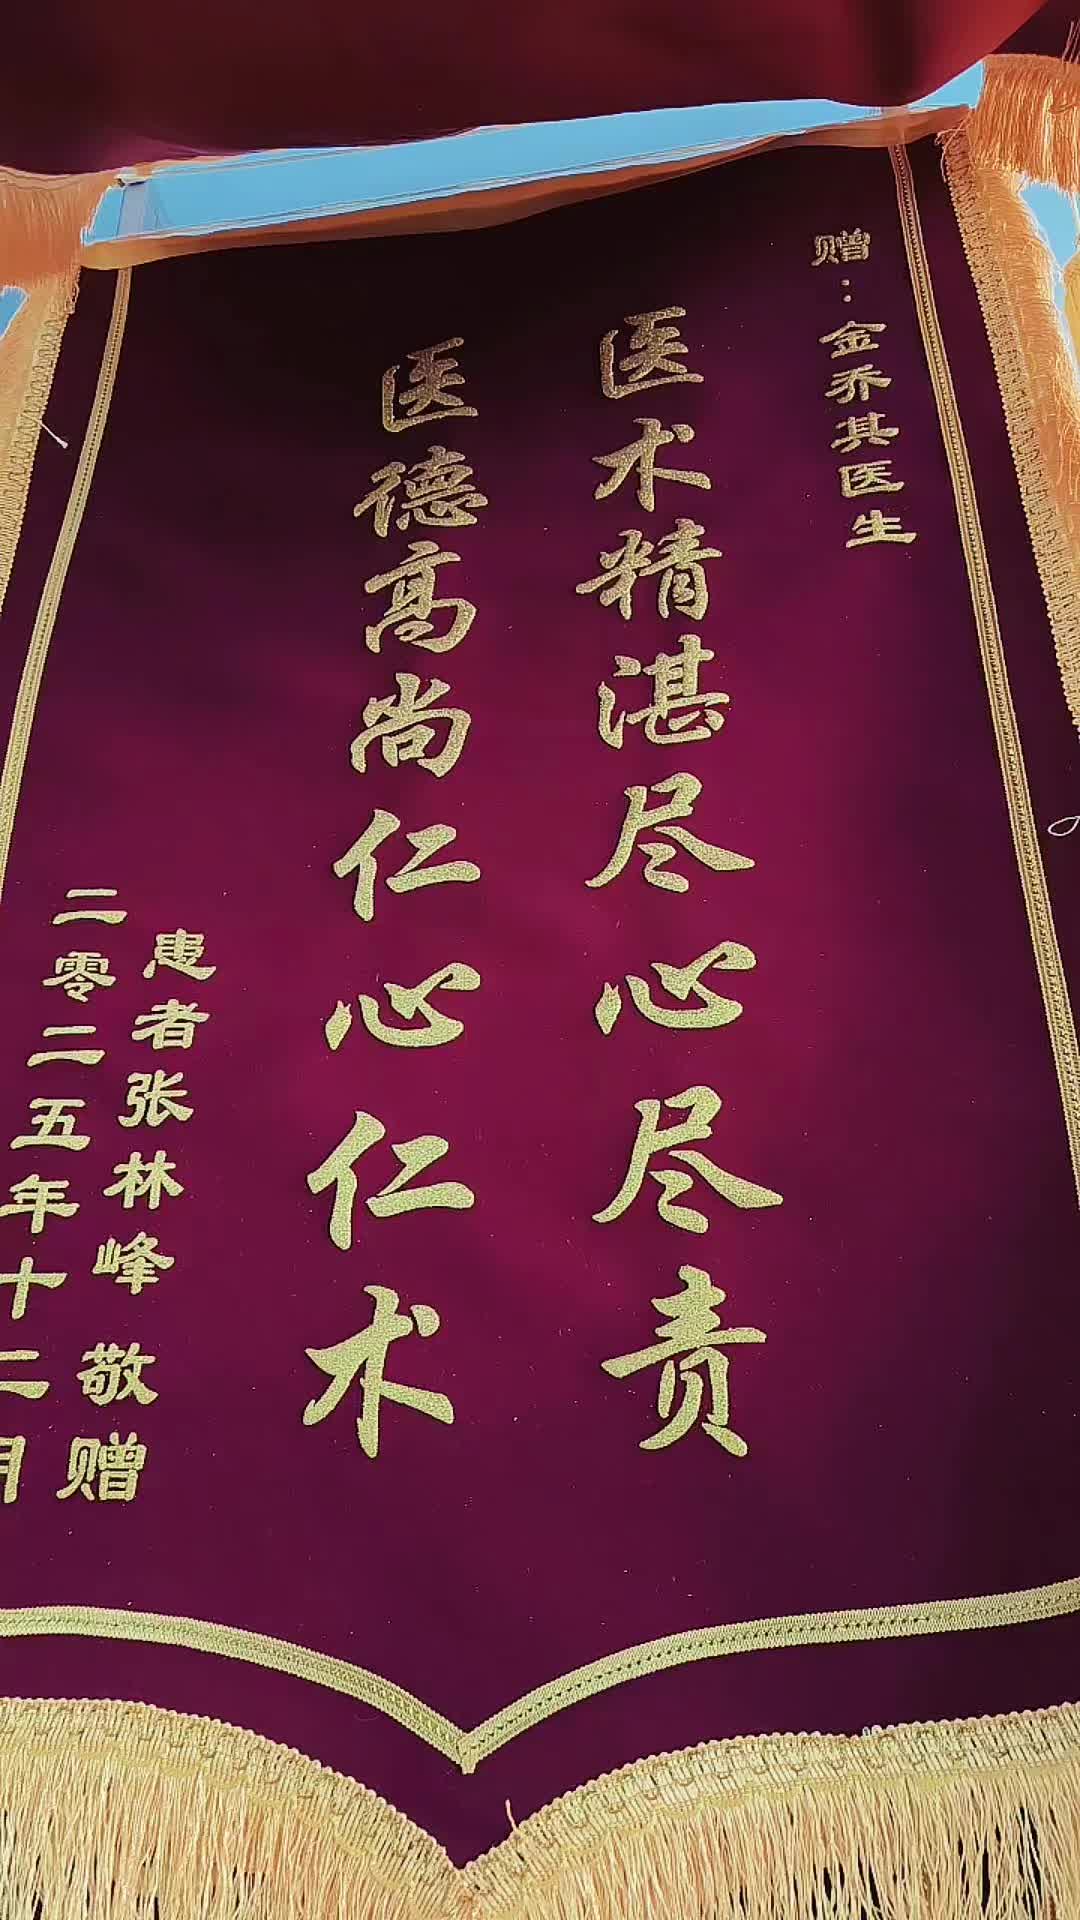 赠：金乔其医生
医术精湛尽心尽责
医德高尚仁心仁术
患者张林峰 敬赠
二零二五年十二月